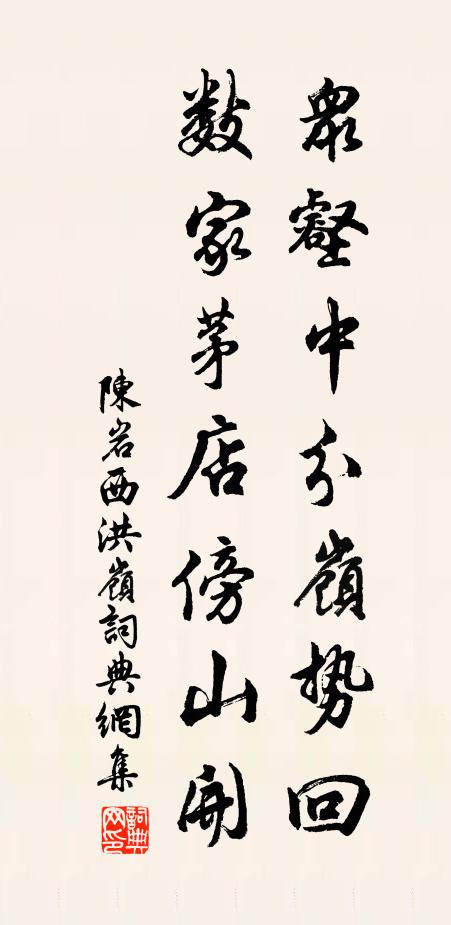 眾壑中分嶺勢回
數家茅店傍山開
陳岩西洪嶺詞典網集
詞典網印